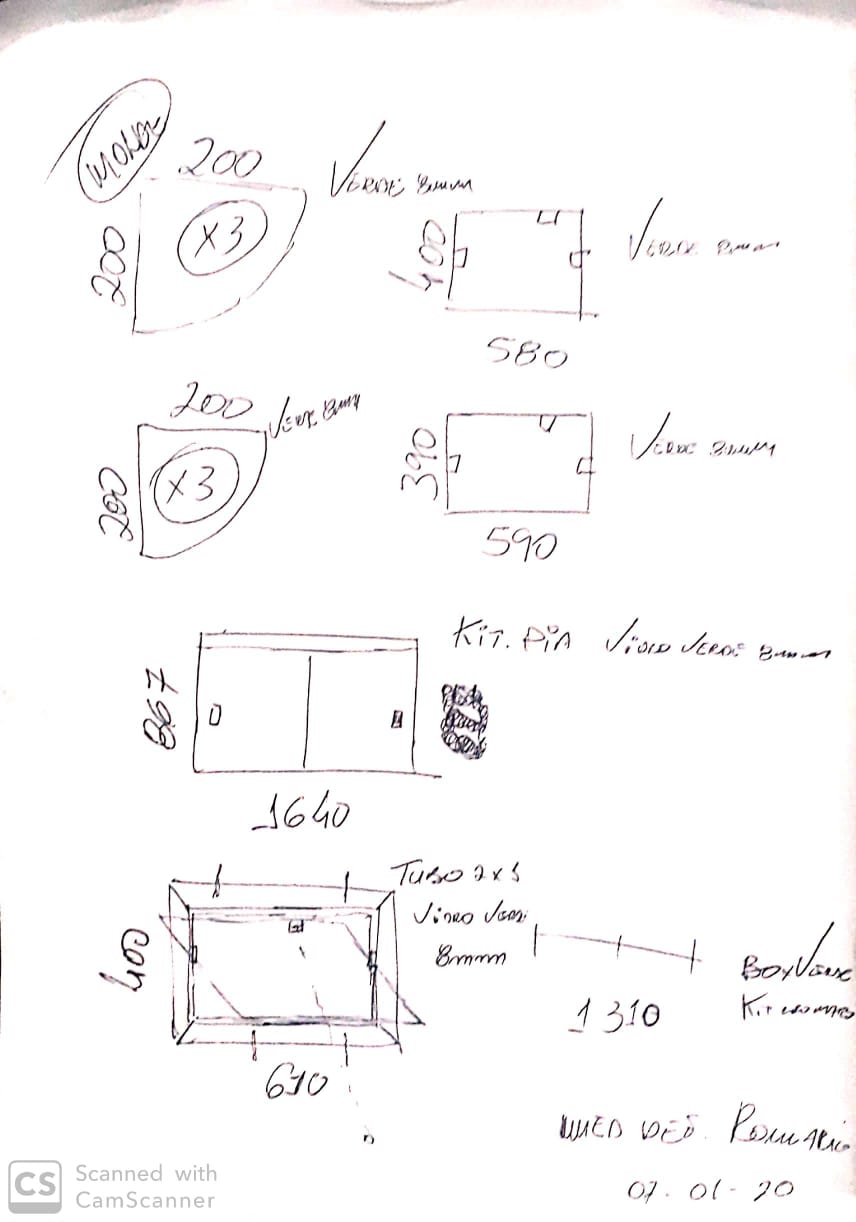 200
VERDE 8mm
200
X3
400
VERDE 8mm
580
200
VERDE 8mm
200
X3
390
VERDE 8mm
590
KIT. PIA VIDRO VERDE 8mm
867
1640
TUBO 2x5
VIDRO VERD
8mm
400
610
1310
BOX VERDE
KIT CROMADO
MED DES. ROMARIO
07-01-20
CS Scanned with
CamScanner